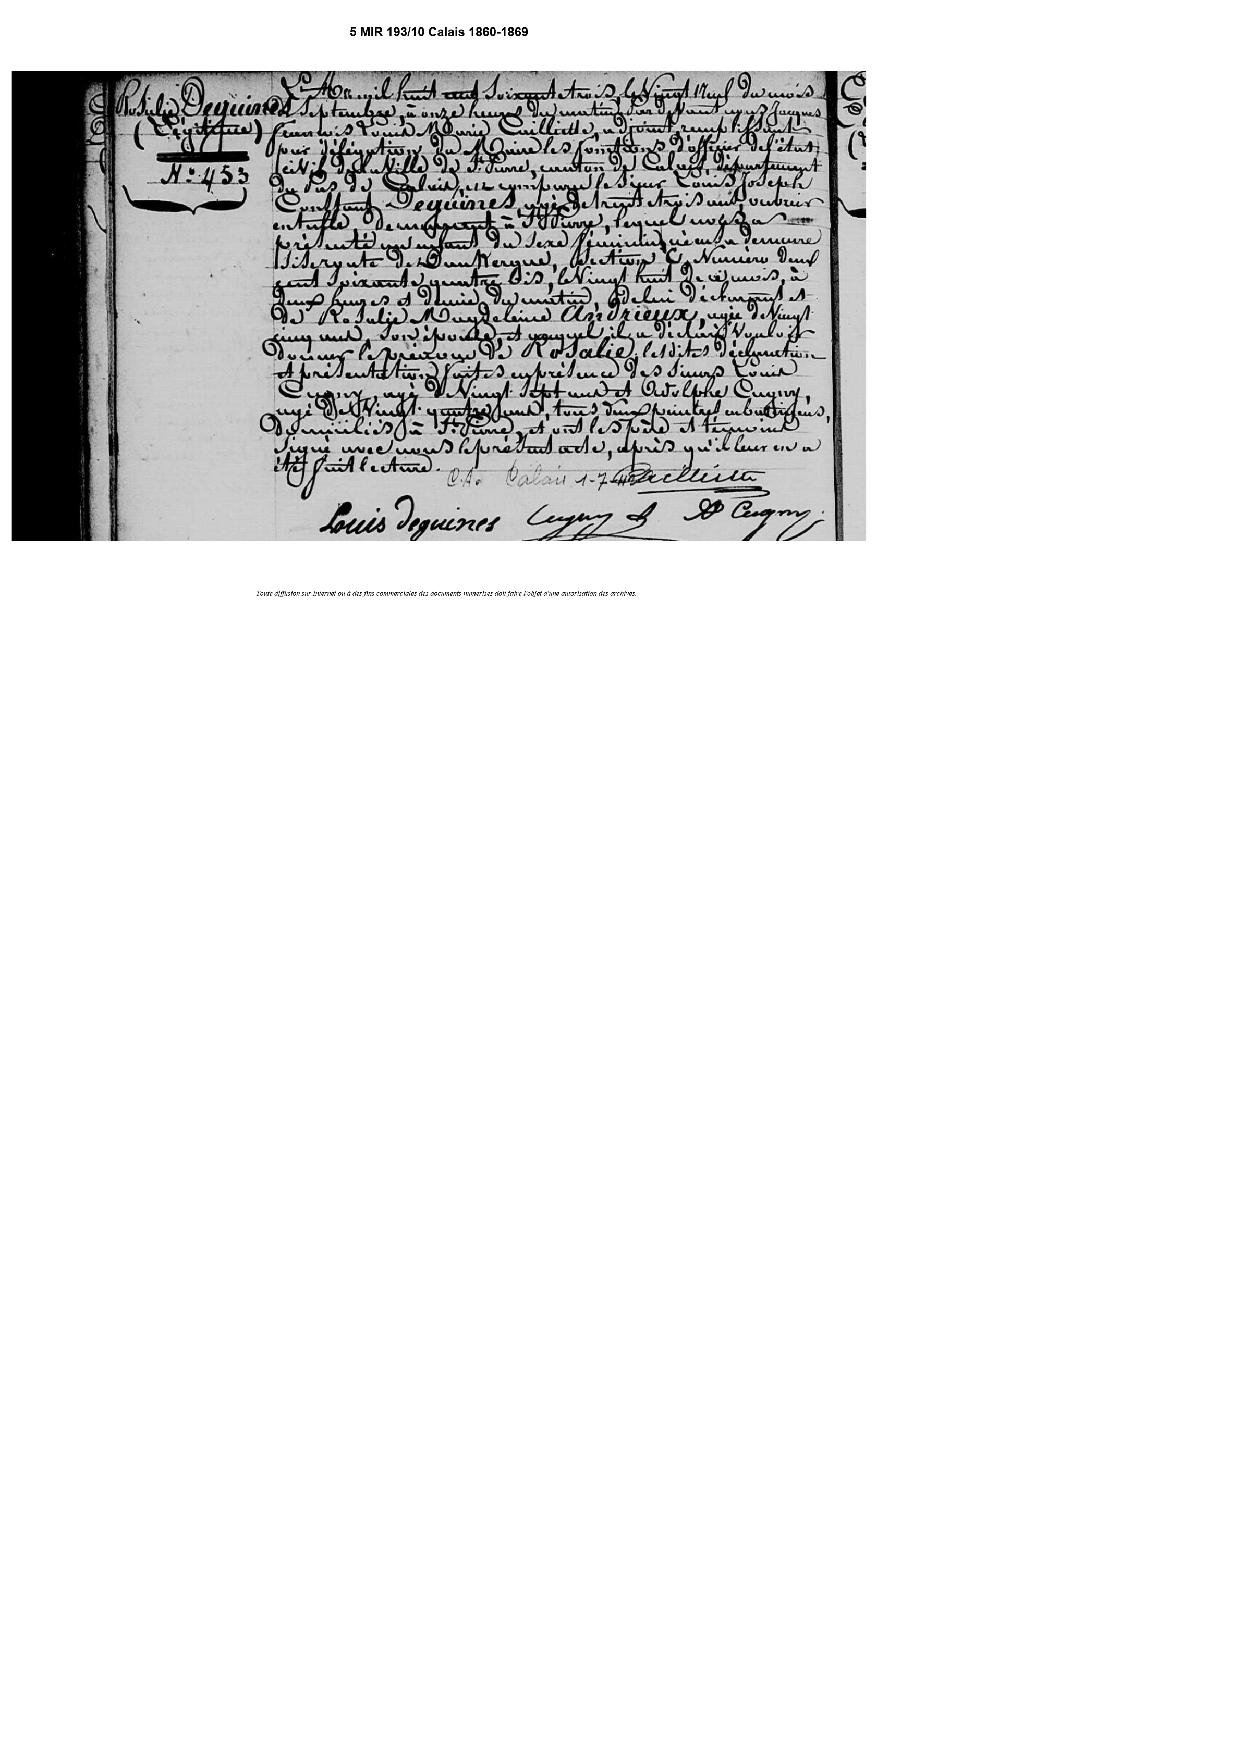 5 MIR 193/10 Calais 1860-1869
Rosalie Deguines
(Légitime)
N° 453
L'An mil huit cent soixante trois, le Vingt Neuf du mois
de Septembre, à onze heures du matin, par devant nous Jacques
François Louis Marie Cailliette, adjoint, remplissant
par délégation du Maire les fonctions d'officier de l'état
Civil de la Ville de St. Pierre, canton de Calais, département
du Pas de Calais, est comparu le sieur Louis Joseph
Constant Deguines, agé de trente trois ans, ouvrier
en tulle demeurant à St. Pierre, lequel nous a
présenté un enfant du sexe féminin, né en sa demeure
sise route de Dunkerque, section C, Numéro deux
cent soixante quatre bis, le Vingt huit de ce mois, à
deux heures et demie du matin, de lui déclarant et
de Rosalie Magdeleine Andrieux, agée de Vingt
cinq ans, son épouse, et auquel il a déclaré Vouloir
donner le prénom de Rosalie, lesdites déclaration
et présentation faites en présence des sieurs Louis
Cugny, agé de Vingt sept ans et Adolphe Cugny,
agé de Vingt quatre ans, tous deux peintres en batiments,
domiciliés à St. Pierre, et ont les père et témoins
signé avec nous le présent acte, après qu'il leur en a
été fait lecture.
C.A. Calais 1-7 Cailliette
Louis deguines Cugny L AD Cugny
Toute diffusion sur Internet ou à des fins commerciales des documents numérisés doit faire l'objet d'une autorisation des archives.